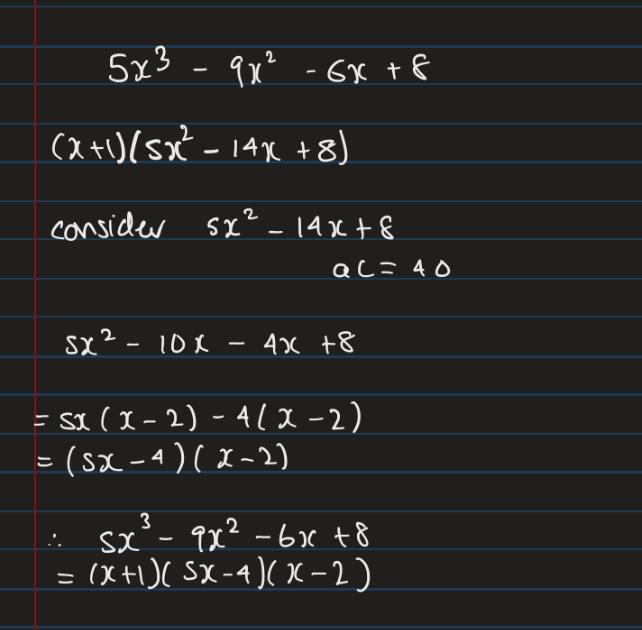 5x³ - 9x² - 6x + 8
(x+1)(5x² - 14x + 8)
consider 5x² - 14x + 8
ac = 40
5x² - 10x - 4x + 8
= 5x(x-2) - 4(x-2)
= (5x-4)(x-2)
∴ 5x³ - 9x² - 6x + 8
= (x+1)(5x-4)(x-2)